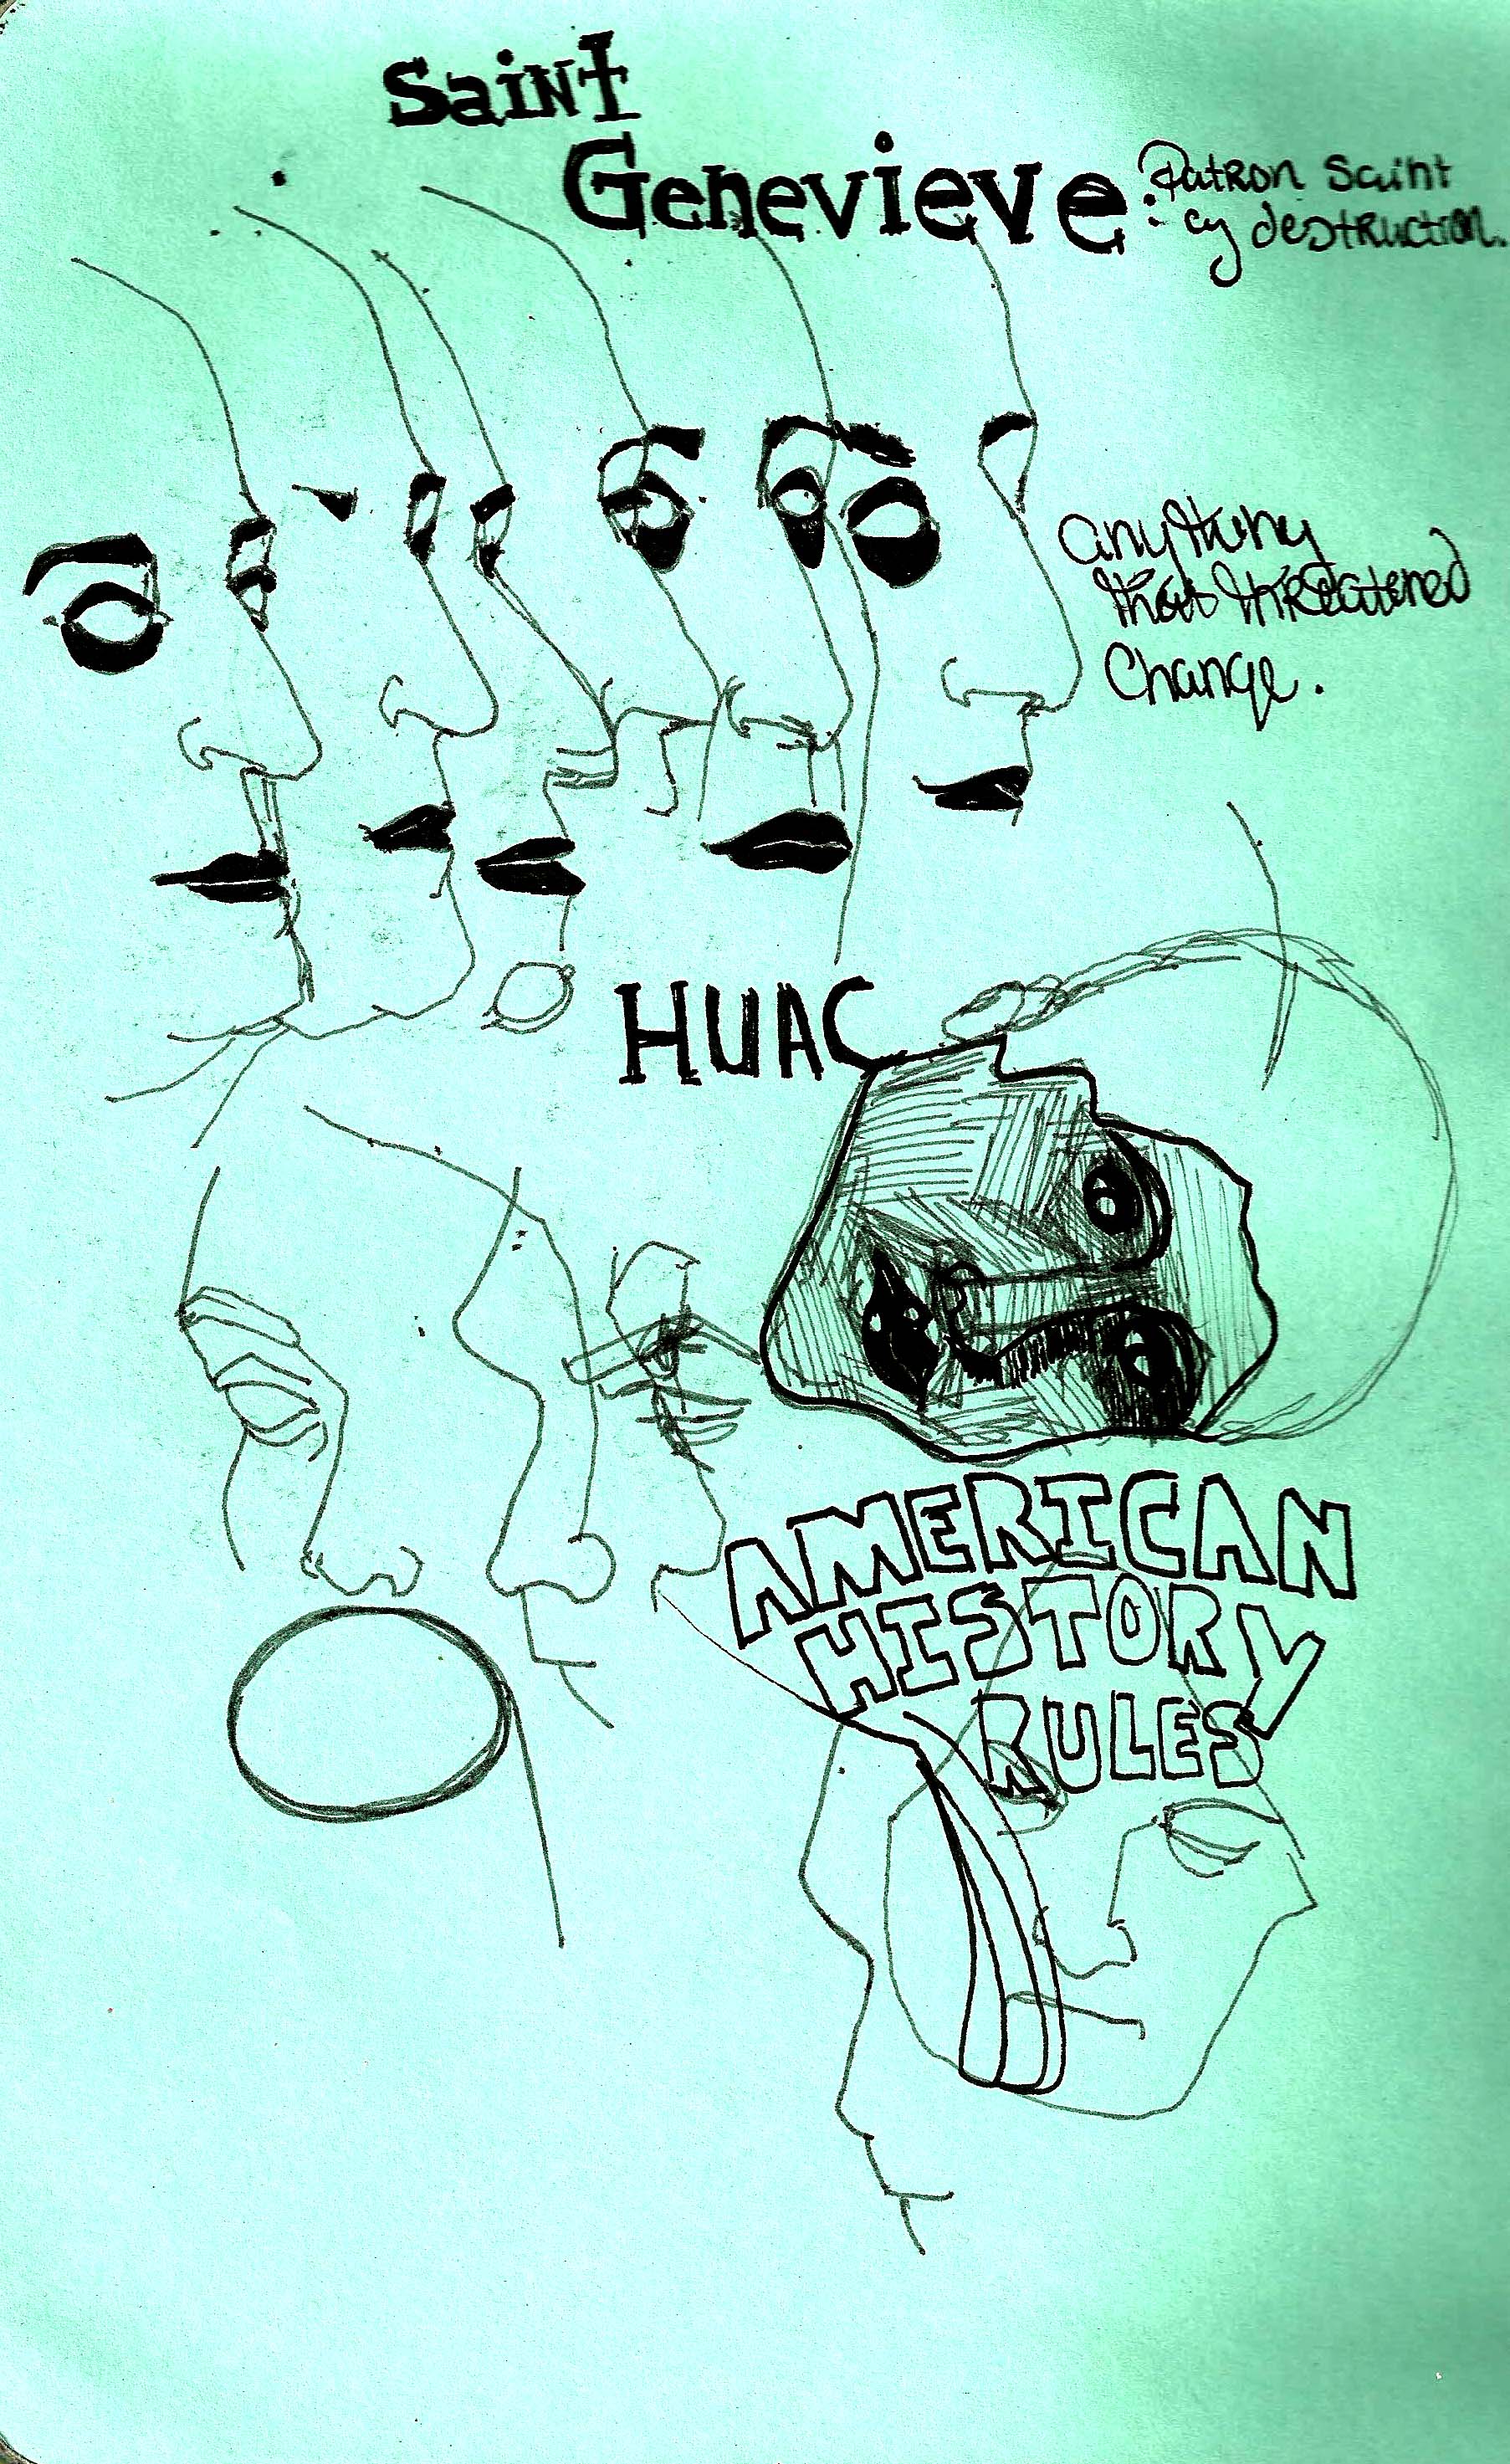 Saint
Genevieve: Patron Saint
of destruction.
anything
that threatened
Change.
HUAC
AMERICAN
HISTORY
RULES